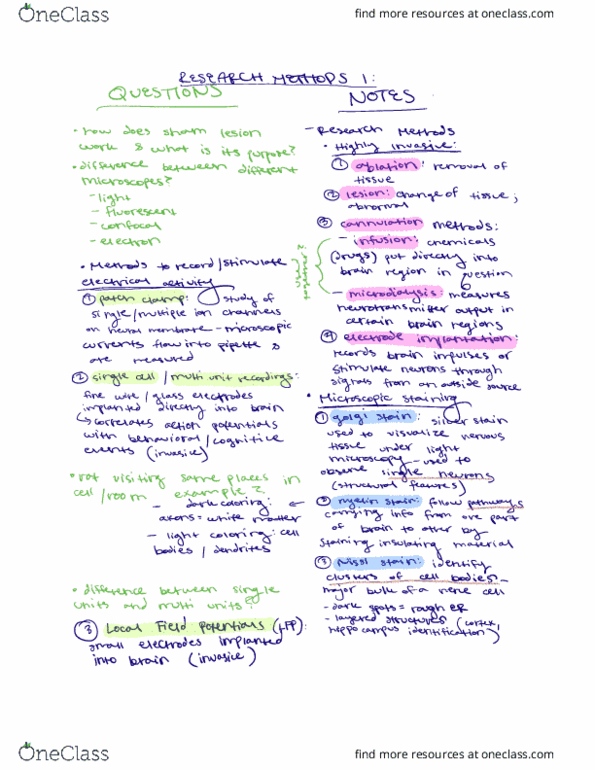 OneClass
find more resources at oneclass.com
RESEARCH METHODS 1:
QUESTIONS
• how does sham lesion
work & what is its purpose?
• difference between different
microscopes?
- light
- fluorescent
- confocal
- electron
• Methods to record/stimulate
electrical activity
① patch clamp: study of
single/multiple ion channels
on neural membrane - microscopic
currents flow into pipette &
are measured
② single cell / multi unit recordings:
fine wire / glass electrodes
implanted directly into brain
↳ correlates action potentials
with behavioral/cognitive
events (invasive)
• rat visiting same places in
cell/room example?
- dark coloring: ←
axons = white matter
- light coloring: cell
bodies / dendrites
• difference between single
units and multi units?
③ Local Field Potentials (LFP):
small electrodes implanted
into brain (invasive)
NOTES
- Research Methods
• Highly Invasive:
① ablation: removal of
tissue
② lesion: change of tissue;
abnormal
③ cannulation methods:
used together?
- infusion: chemicals
(drugs) put directly into
brain region in question
- microdialysis: measures
neurotransmitter output in
certain brain regions
④ electrode implantation:
records brain impulses or
stimulate neurons through
signals from an outside source
• Microscopic staining
① golgi stain: silver stain
used to visualize nervous
tissue under light
microscopy - used to
observe single neurons
(structural features)
② myelin stain: follow pathways
carrying info from one part
of brain to other by
staining insulating material
③ Nissl stain: identify
clusters of cell bodies -
major bulk of a nerve cell
- dark spots = rough ER
- layered structures (cortex,
hippocampus identification)
OneClass
find more resources at oneclass.com